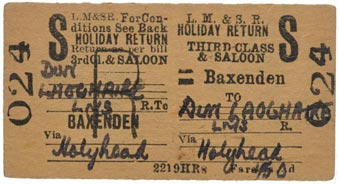 024
L. M. & S. R. For Con-
ditions See Back
HOLIDAY RETURN
Return as per bill
3rd Cl. & SALOON
S
DUN
LAOGHAIRE
LMS
R. To
BAXENDEN
Via
Holyhead
L. M. & S. R.
HOLIDAY RETURN
THIRD CLASS
& SALOON
S
Baxenden
TO
DUN LAOGHAIRE
LMS R.
Via
Holyhead
2219HRs Fare
024